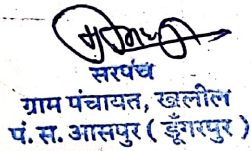 सरपंच
ग्राम पंचायत, खलील
पं. स. आसपुर ( डूँगरपुर )